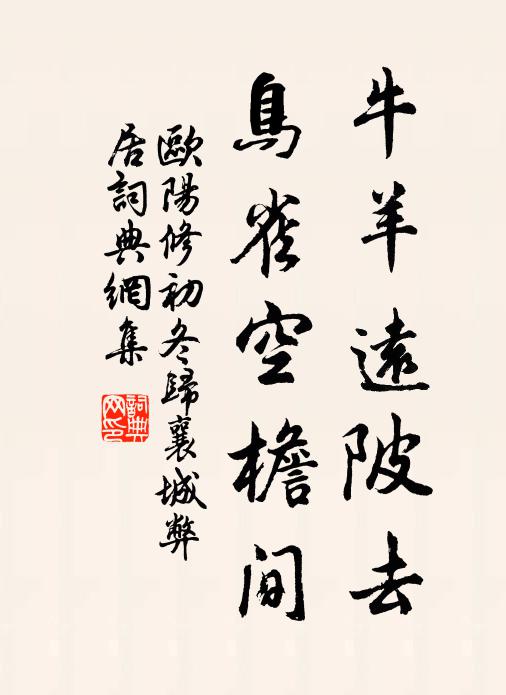 牛羊遠陂去
鳥雀空檐間
歐陽修初冬歸襄城弊
居詞典網集
詞典
网印